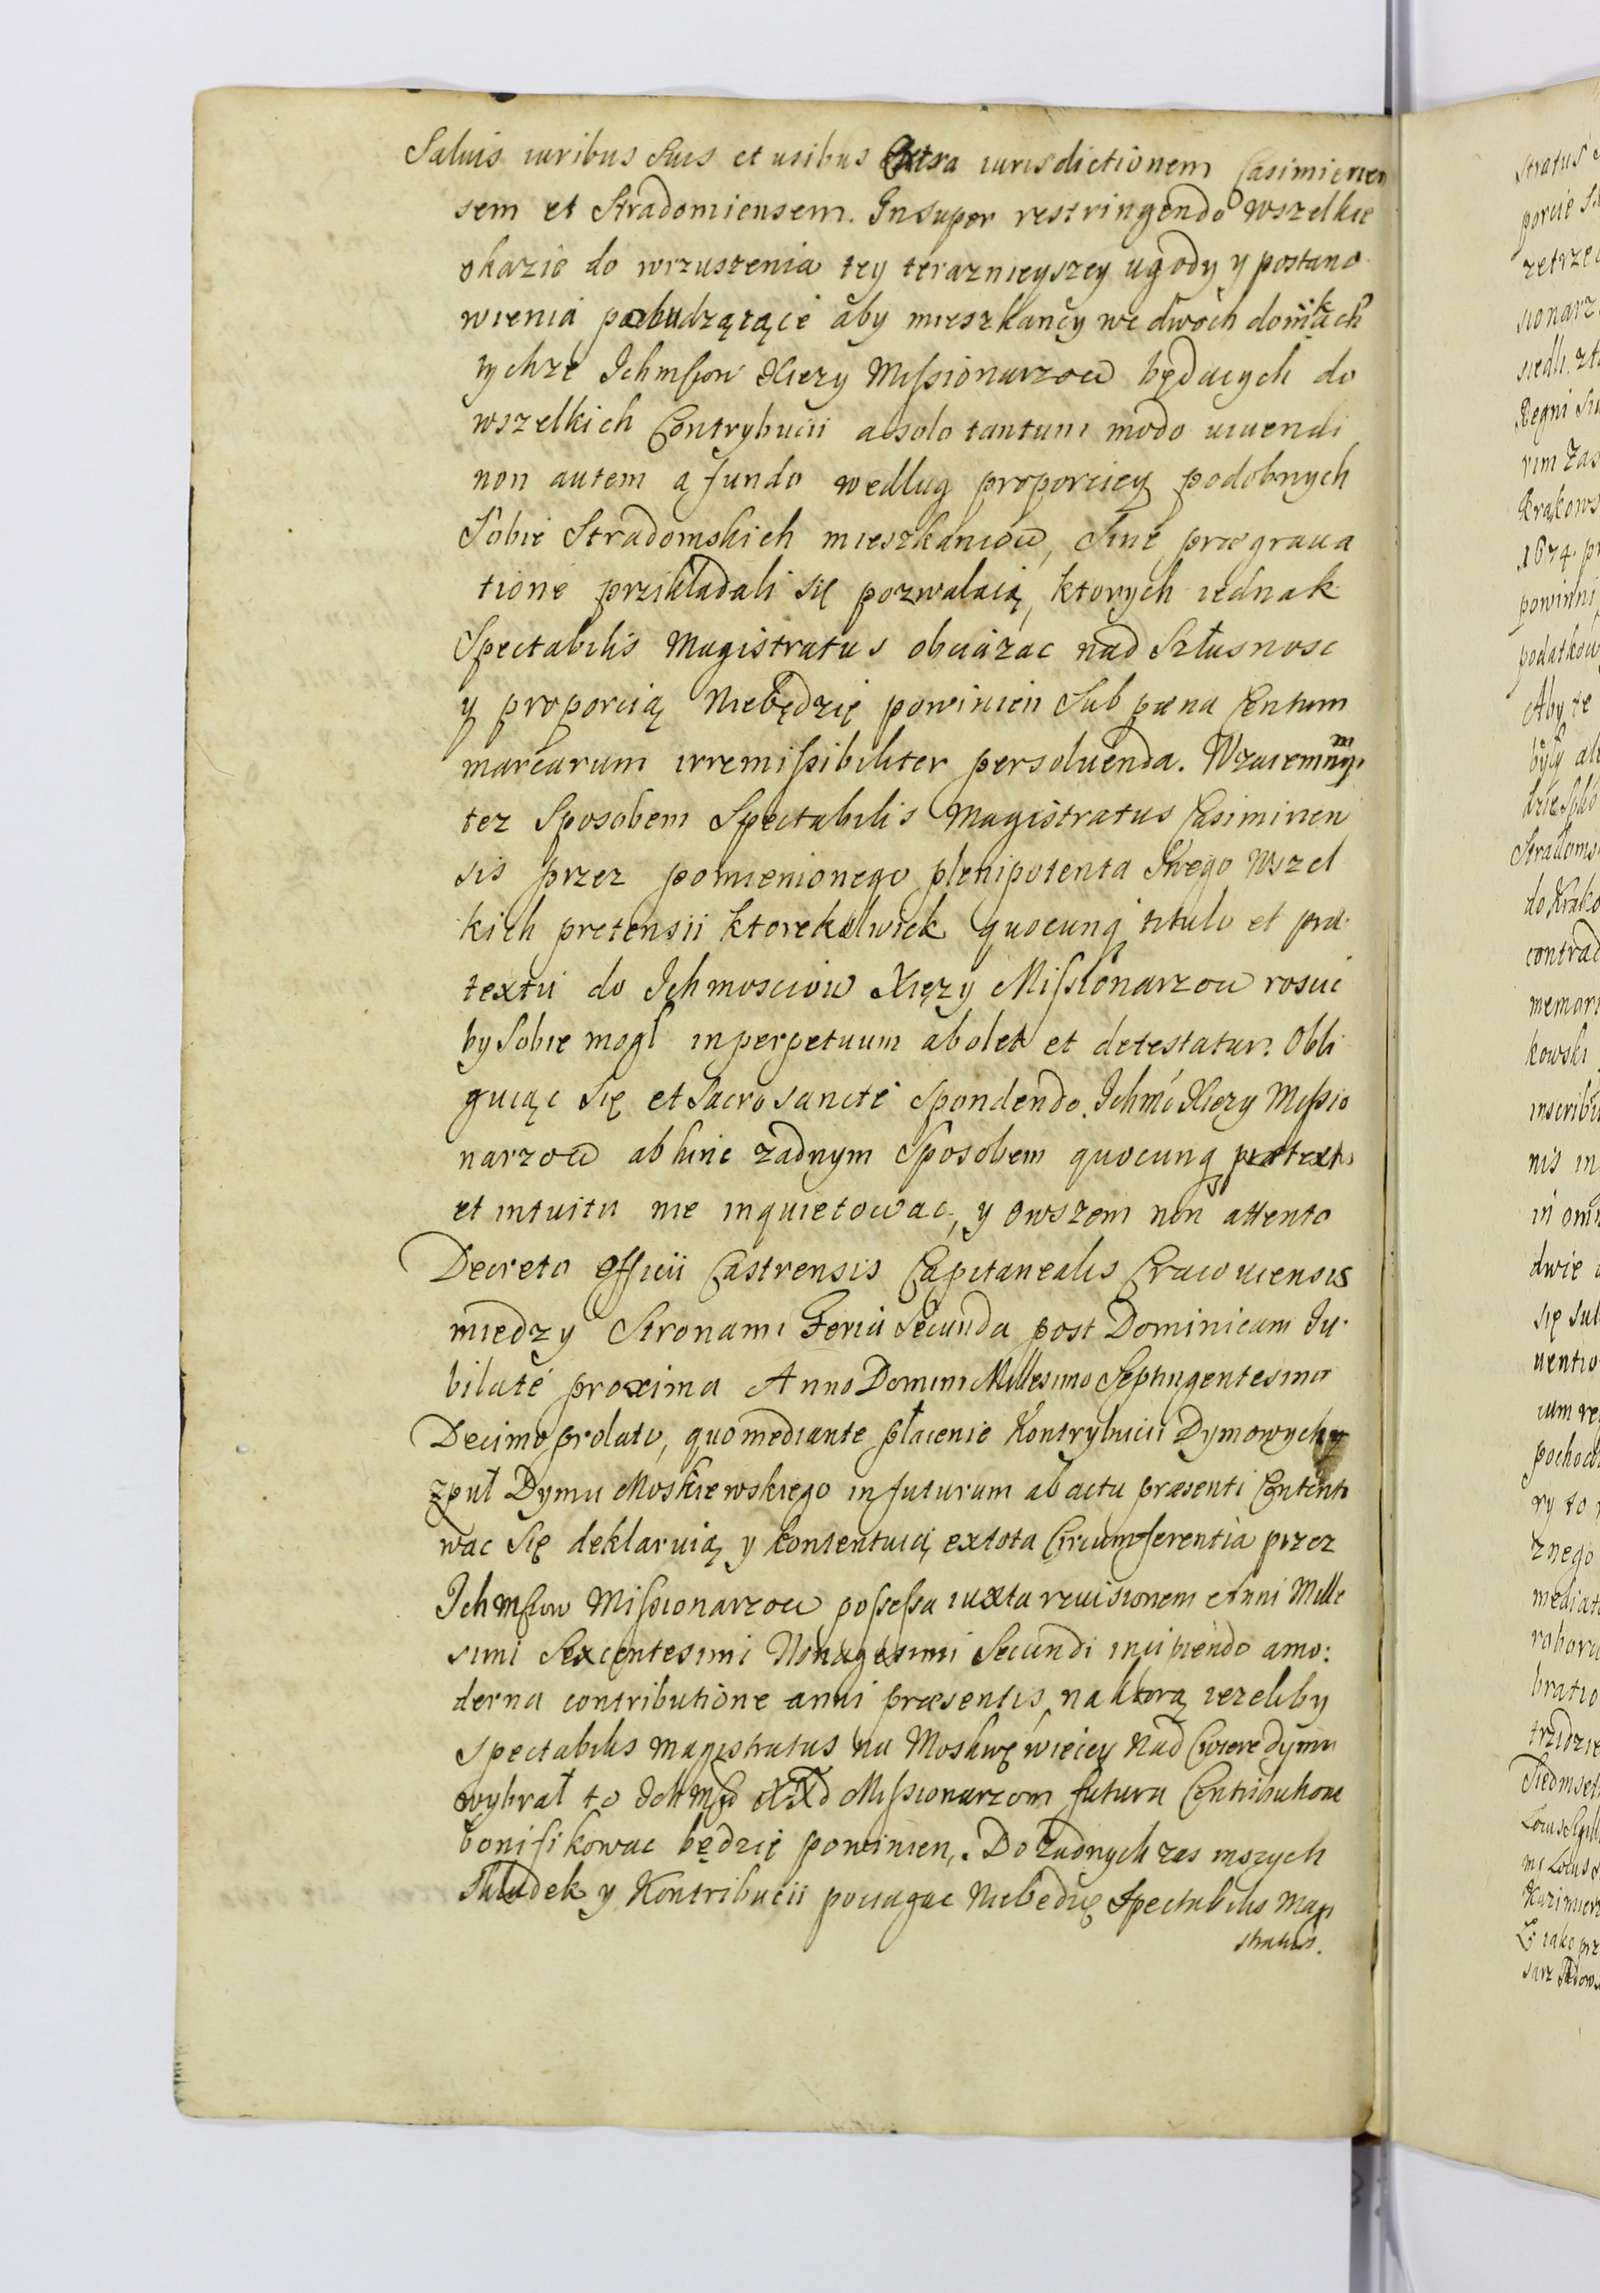 Saluis iuribus Suis et usibus Extra iurisdictionem Casimirien
sem et Stradomiensem. Insuper restringendo wszelkie
okazie do wzruszenia tey teraznieyszey ugody y postano
wienia pobudzaiące aby mieszkancy we dwoch domkach
tychze Ichmsciow Xiezy Missionarzow będących do
wszelkich Contrybucii a solo tantum modo uiuendi
non autem a fundo wedlug proporciey podobnych
Sobie Stradomskich mieszkancow, Sine prægraua
tione przikladali się pozwalaią, ktorych iednak
Spectabilis Magistratus obciązac nad Słusnosc
y proporcią Niebędzie powinien Sub pœna Centum
marcarum irremissibiliter persoluenda. Wzaiemnym
tez Sposobem Spectabilis Magistratus Casimirien
sis przez pomienionego plenipotenta Swego Wszel
kich pretensii ktorekolwiek quocunq titulo et præ
textu do Ichmosciow Xięzy Missionarzow roscic
by Sobie mogł in perpetuum abolet et detestatur. Obli
guiąc Się et Sacrosancte Spondendo. Ichmć Xiezy Missio
narzow abhinc zadnym Sposobem quocunq prætextu
et intuitu nie inquietowac, y owszem non attento
Decreto Officii Castrensis Capitanealis Cracouiensis
miedzy Stronami Feria Secunda post Dominicam Iu
bilate proxima Anno Domini Millesimo Septingentesimo
Decimo prolato, quo mediante płacenie Kontrybucii Dymowych
z puł Dymu Moskiewskiego in futurum ab actu præsenti Contento
wac Się deklaruią y kontentuią ex tota Circumferentia przez
Ichmsciow Missionarzow possessa iuxta reuisionem Anni Mille
simi Sexcentesimi Nonagesimi Secundi incipiendo a mo:
derna contributione anni præsentis, na ktorą iezeliby
Spectabilis Magistratus na Moskwę więcey nad Cwierc dymu
wybrał to Ichmsc XX Missionarzom futura Contributione
bonifikowac będzie powinien. Do zadnych zas inszych
Składek y Kontribucii pociągac Niebedzie Spectabilis Magi
stratus.